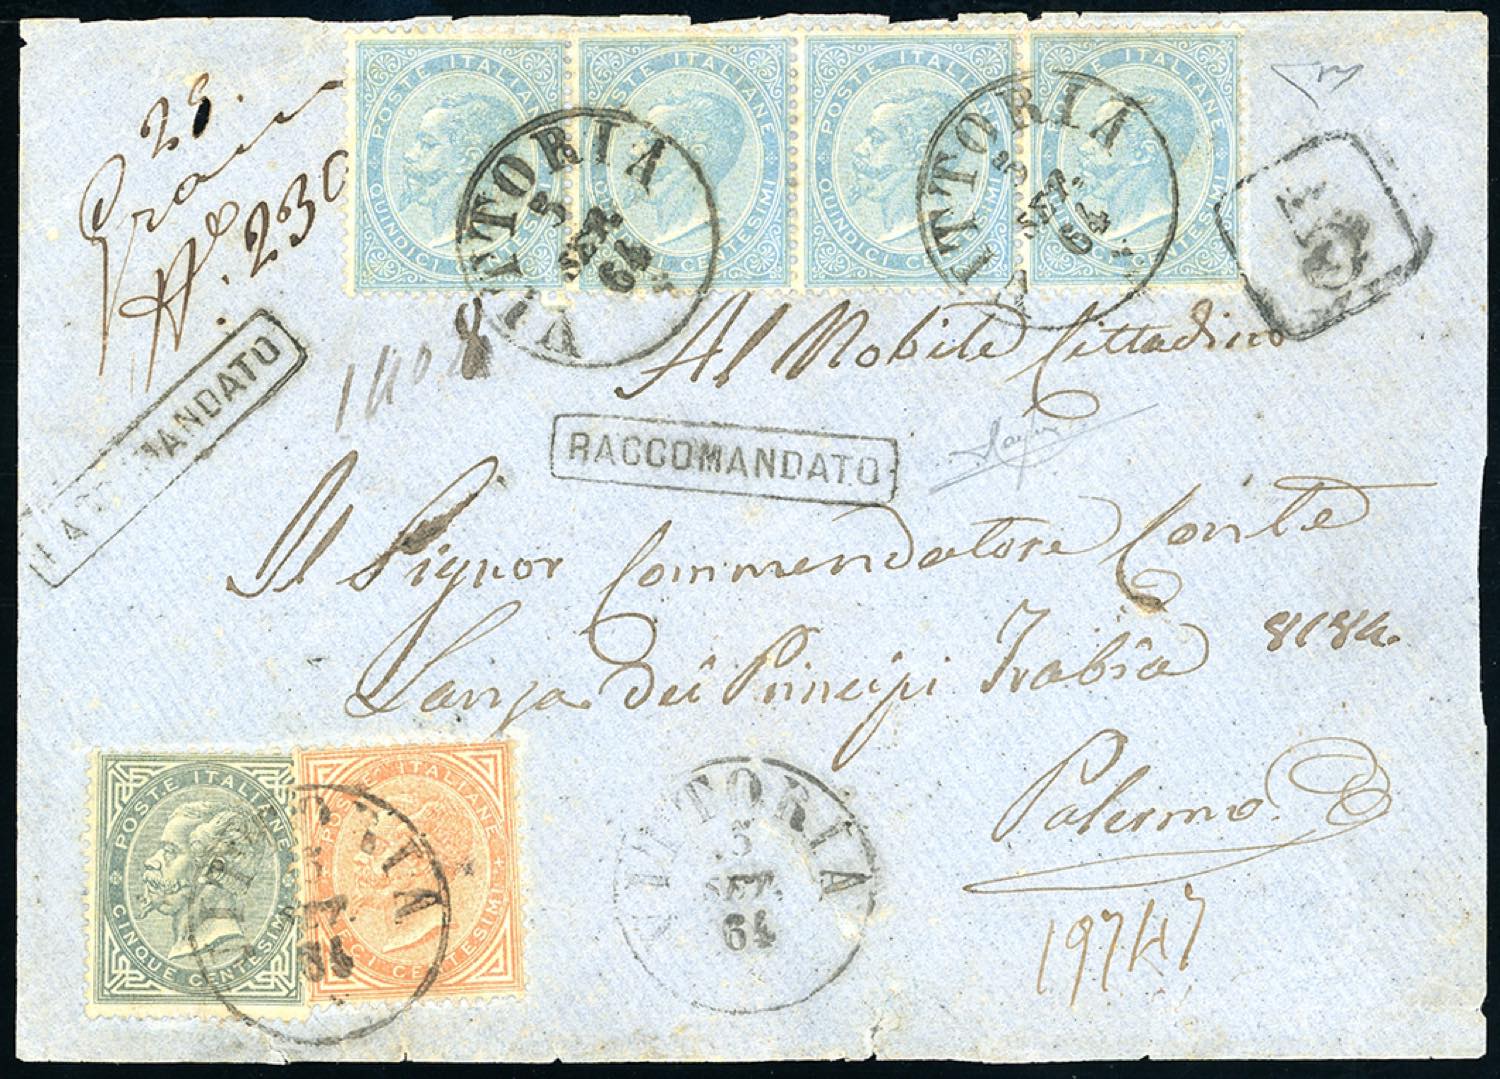 POSTE ITALIANE QUINDICI CENTESIMI
POSTE ITALIANE QUINDICI CENTESIMI
POSTE ITALIANE QUINDICI CENTESIMI
POSTE ITALIANE QUINDICI CENTESIMI
VITTORIA
5
SET.
64
VITTORIA
5
SET.
64
No. 230
RACCOMANDATO
Al Nobile Cittadino
RACCOMANDATO
Il Signor Commendatore Conte
Lanza dei Principi Trabia
8184.
Palermo
19747
POSTE ITALIANE CINQUE CENTESIMI
POSTE ITALIANE DIECI CENTESIMI
VITTORIA
5
SET.
64
VITTORIA
5
SET.
64